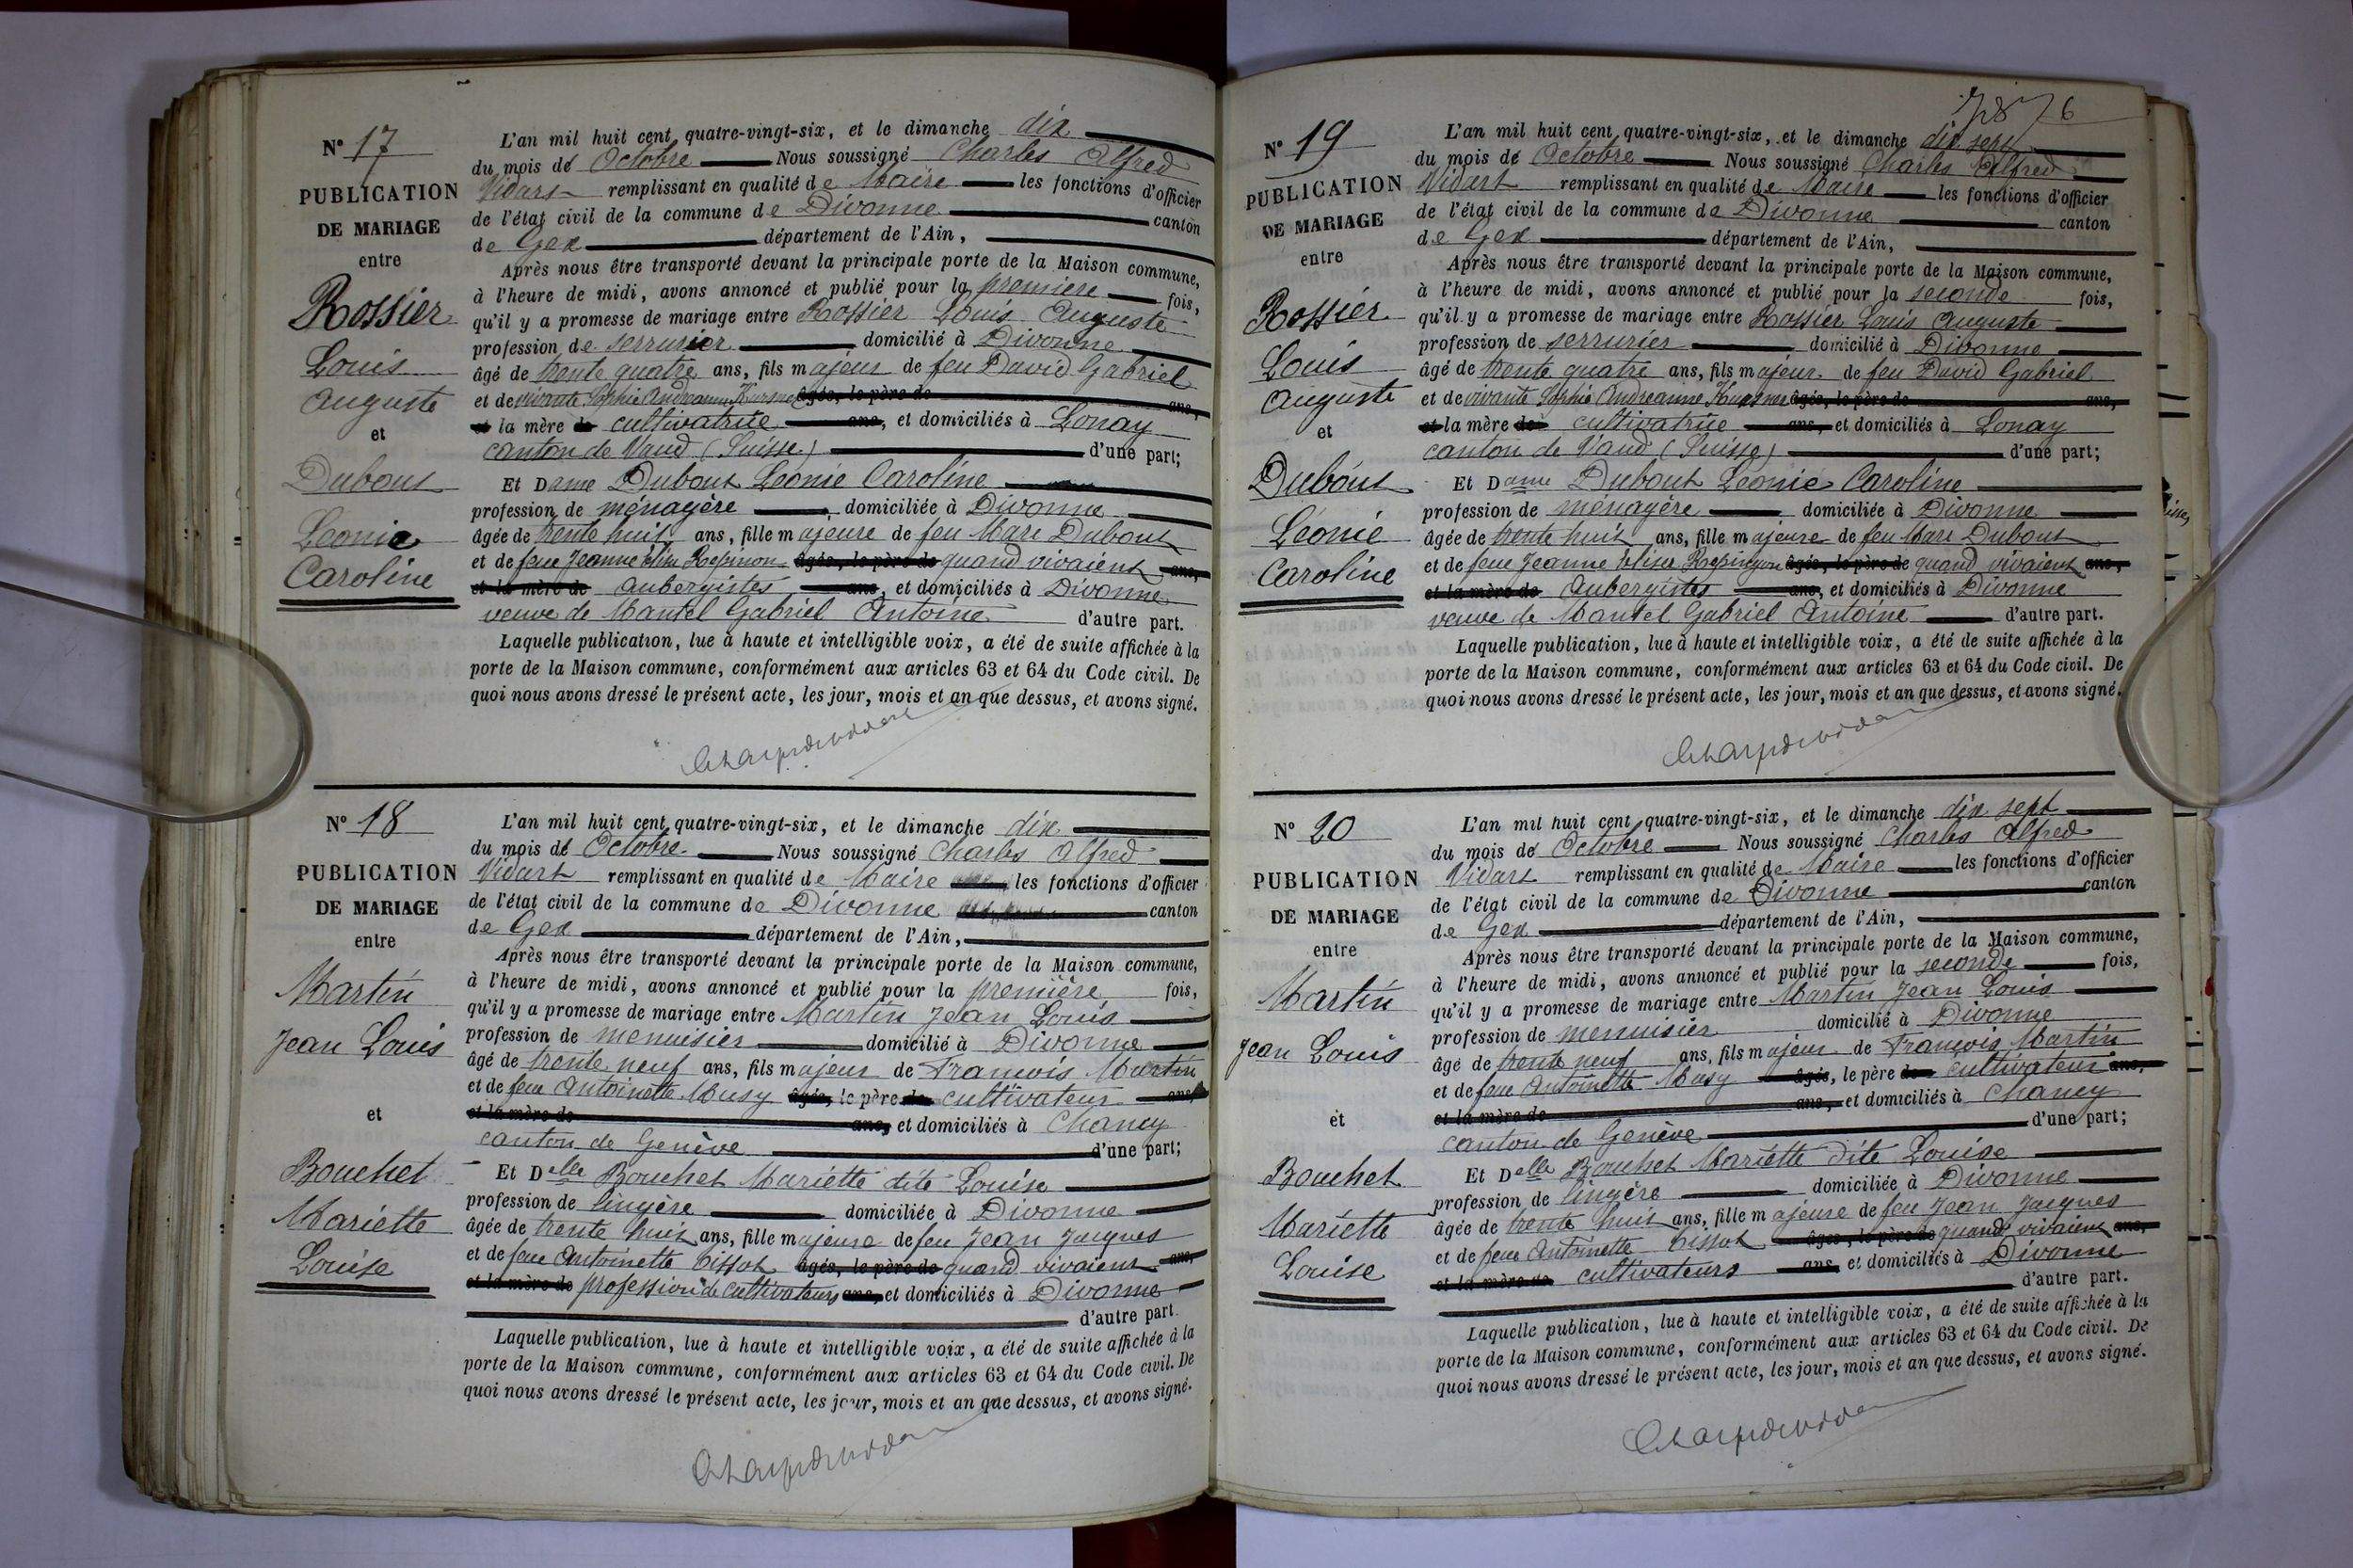 N° 17
PUBLICATION
DE MARIAGE
entre
Rossier
Louis
Auguste
et
Dubout
Leonie
Caroline
L'an mil huit cent quatre-vingt-six, et le dimanche dix
du mois de Octobre Nous soussigné Charles Alfred
Vidart remplissant en qualité de Maire les fonctions d'officier
de l'état civil de la commune de Divonne canton
de Gex département de l'Ain,
Après nous être transporté devant la principale porte de la Maison commune,
à l'heure de midi, avons annoncé et publié pour la première fois,
qu'il y a promesse de mariage entre Rossier Louis Auguste
profession de serrurier domicilié à Divonne
âgé de trente quatre ans, fils majeur de feu David Gabriel
et de vivante Sophie Andreanne âgés, le père de ans,
et la mère de cultivatrice ans, et domiciliés à Lonay
canton de Vaud (Suisse) d'une part;
Et Dame Dubout Leonie Caroline
profession de ménagère domiciliée à Divonne
âgée de trente huit ans, fille majeure de feu Marc Dubout
et de feue Jeanne Elise âgés, le père de quand vivaient ans,
et la mère de aubergistes ans, et domiciliés à Divonne
veuve de Mantel Gabriel Antoine d'autre part.
Laquelle publication, lue à haute et intelligible voix, a été de suite affichée à la
porte de la Maison commune, conformément aux articles 63 et 64 du Code civil. De
quoi nous avons dressé le présent acte, les jour, mois et an que dessus, et avons signé.
N° 18
PUBLICATION
DE MARIAGE
entre
Martin
Jean Louis
et
Bouchet
Mariette
Louise
L'an mil huit cent quatre-vingt-six, et le dimanche dix
du mois de Octobre Nous soussigné Charles Alfred
Vidart remplissant en qualité de Maire les fonctions d'officier
de l'état civil de la commune de Divonne canton
de Gex département de l'Ain,
Après nous être transporté devant la principale porte de la Maison commune,
à l'heure de midi, avons annoncé et publié pour la première fois,
qu'il y a promesse de mariage entre Martin Jean Louis
profession de menuisier domicilié à Divonne
âgé de trente neuf ans, fils majeur de François Martin
et de feue Antoinette Musy âgés, le père de cultivateur ans,
et la mère de ans, et domiciliés à Chancy
canton de Genève d'une part;
Et Delle Bouchet Mariette dite Louise
profession de lingère domiciliée à Divonne
âgée de trente huit ans, fille majeure de feu Jean Jacques
et de feue Antoinette Tissot âgés, le père de quand vivaient ans,
et la mère de profession de cultivateurs ans, et domiciliés à Divonne
d'autre part.
Laquelle publication, lue à haute et intelligible voix, a été de suite affichée à la
porte de la Maison commune, conformément aux articles 63 et 64 du Code civil. De
quoi nous avons dressé le présent acte, les jour, mois et an que dessus, et avons signé.
N° 19
PUBLICATION
DE MARIAGE
entre
Rossier
Louis
Auguste
et
Dubout
Léonie
Caroline
L'an mil huit cent quatre-vingt-six, et le dimanche dix sept
du mois de Octobre Nous soussigné Charles Alfred
Vidart remplissant en qualité de Maire les fonctions d'officier
de l'état civil de la commune de Divonne canton
de Gex département de l'Ain,
Après nous être transporté devant la principale porte de la Maison commune,
à l'heure de midi, avons annoncé et publié pour la seconde fois,
qu'il y a promesse de mariage entre Rossier Louis Auguste
profession de serrurier domicilié à Divonne
âgé de trente quatre ans, fils majeur de feu David Gabriel
et de vivante Sophie Andreanne âgés, le père de ans,
et la mère de cultivatrice ans, et domiciliés à Lonay
canton de Vaud (Suisse) d'une part;
Et Dame Dubout Leonie Caroline
profession de ménagère domiciliée à Divonne
âgée de trente huit ans, fille majeure de feu Marc Dubout
et de feue Jeanne Elise âgés, le père de quand vivaient ans,
et la mère de Aubergistes ans, et domiciliés à Divonne
veuve de Mantel Gabriel Antoine d'autre part.
Laquelle publication, lue à haute et intelligible voix, a été de suite affichée à la
porte de la Maison commune, conformément aux articles 63 et 64 du Code civil. De
quoi nous avons dressé le présent acte, les jour, mois et an que dessus, et avons signé.
N° 20
PUBLICATION
DE MARIAGE
entre
Martin
Jean Louis
et
Bouchet
Mariette
Louise
L'an mil huit cent quatre-vingt-six, et le dimanche dix sept
du mois de Octobre Nous soussigné Charles Alfred
Vidart remplissant en qualité de Maire les fonctions d'officier
de l'état civil de la commune de Divonne canton
de Gex département de l'Ain,
Après nous être transporté devant la principale porte de la Maison commune,
à l'heure de midi, avons annoncé et publié pour la seconde fois,
qu'il y a promesse de mariage entre Martin Jean Louis
profession de menuisier domicilié à Divonne
âgé de trente neuf ans, fils majeur de François Martin
et de feue Antoinette Musy âgés, le père de cultivateur ans,
et la mère de ans, et domiciliés à Chancy
canton de Genève d'une part;
Et Delle Bouchet Mariette dite Louise
profession de lingère domiciliée à Divonne
âgée de trente huit ans, fille majeure de feu Jean Jacques
et de feue Antoinette Tissot âgés, le père de quand vivaient ans,
et la mère de cultivateurs ans, et domiciliés à Divonne
d'autre part.
Laquelle publication, lue à haute et intelligible voix, a été de suite affichée à la
porte de la Maison commune, conformément aux articles 63 et 64 du Code civil. De
quoi nous avons dressé le présent acte, les jour, mois et an que dessus, et avons signé.